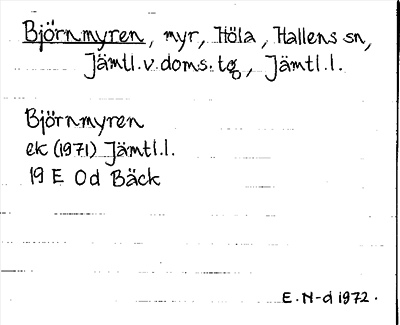 Björnmyren, myr, Höla, Hallens sn,
Jämtl.v.doms.tg, Jämtl.l.
Björnmyren
ek (1971) Jämtl.l.
19 E 0d Bäck
E.N-d 1972.